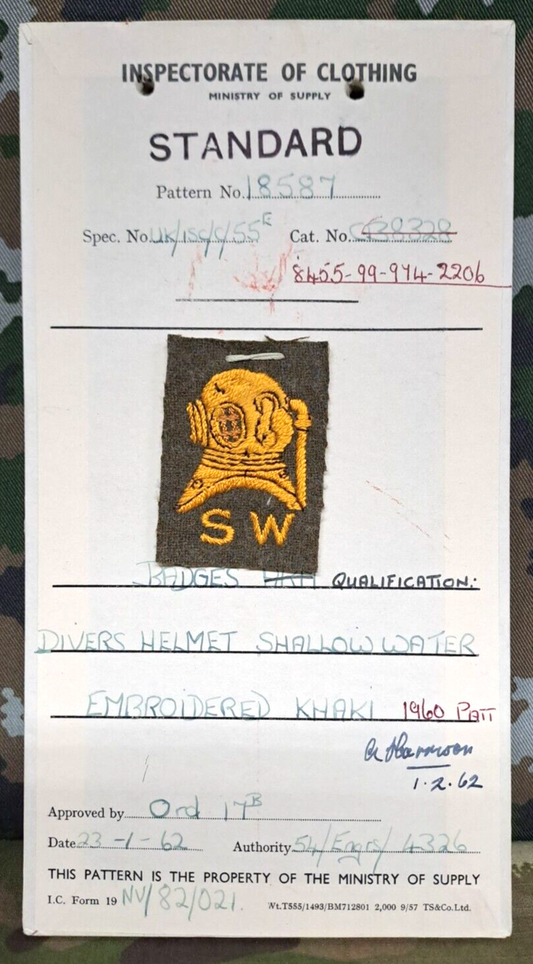 INSPECTORATE OF CLOTHING
MINISTRY OF SUPPLY
STANDARD
Pattern No. 18587
Spec. No. UK/ISC/C/55E Cat. No. C38328
8455-99-974-2206
SW
BADGES QUALIFICATION:
DIVERS HELMET SHALLOW WATER
EMBROIDERED KHAKI 1960 PATT
1.2.62
Approved by Ord 17B
Date 23-1-62 Authority 54/Engrs/4326
THIS PATTERN IS THE PROPERTY OF THE MINISTRY OF SUPPLY
I.C. Form 19 NV/82/021. Wt.T555/1493/BM712801 2,000 9/57 TS&Co.Ltd.